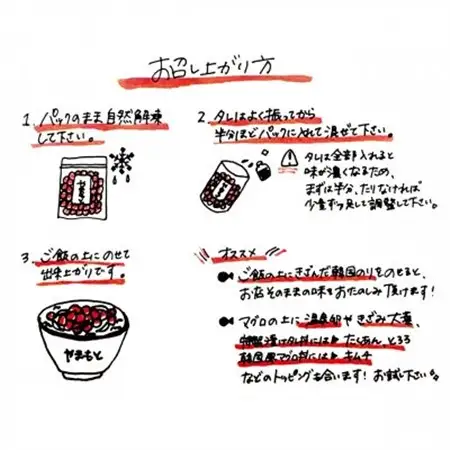 お召し上がり方
1. パックのまま自然解凍
して下さい。
2. タレはよく振ってから
半分ほどパックに入れて混ぜて下さい。
タレは全部入れると
味が濃くなるため、
まずは半分、たりなければ
少量ずつ足して調整して下さい。
3. ご飯の上にのせて
出来上がりです。
やまもと
オススメ
ご飯の上にきざんだ韓国のりをのせると、
お店そのままの味をおたのしみ頂けます!
マグロの上に温泉卵やきざみ大葉、
たくあん、とろろ
韓国風マグロ丼には▶キムチ
などのトッピングも合います! お試し下さい